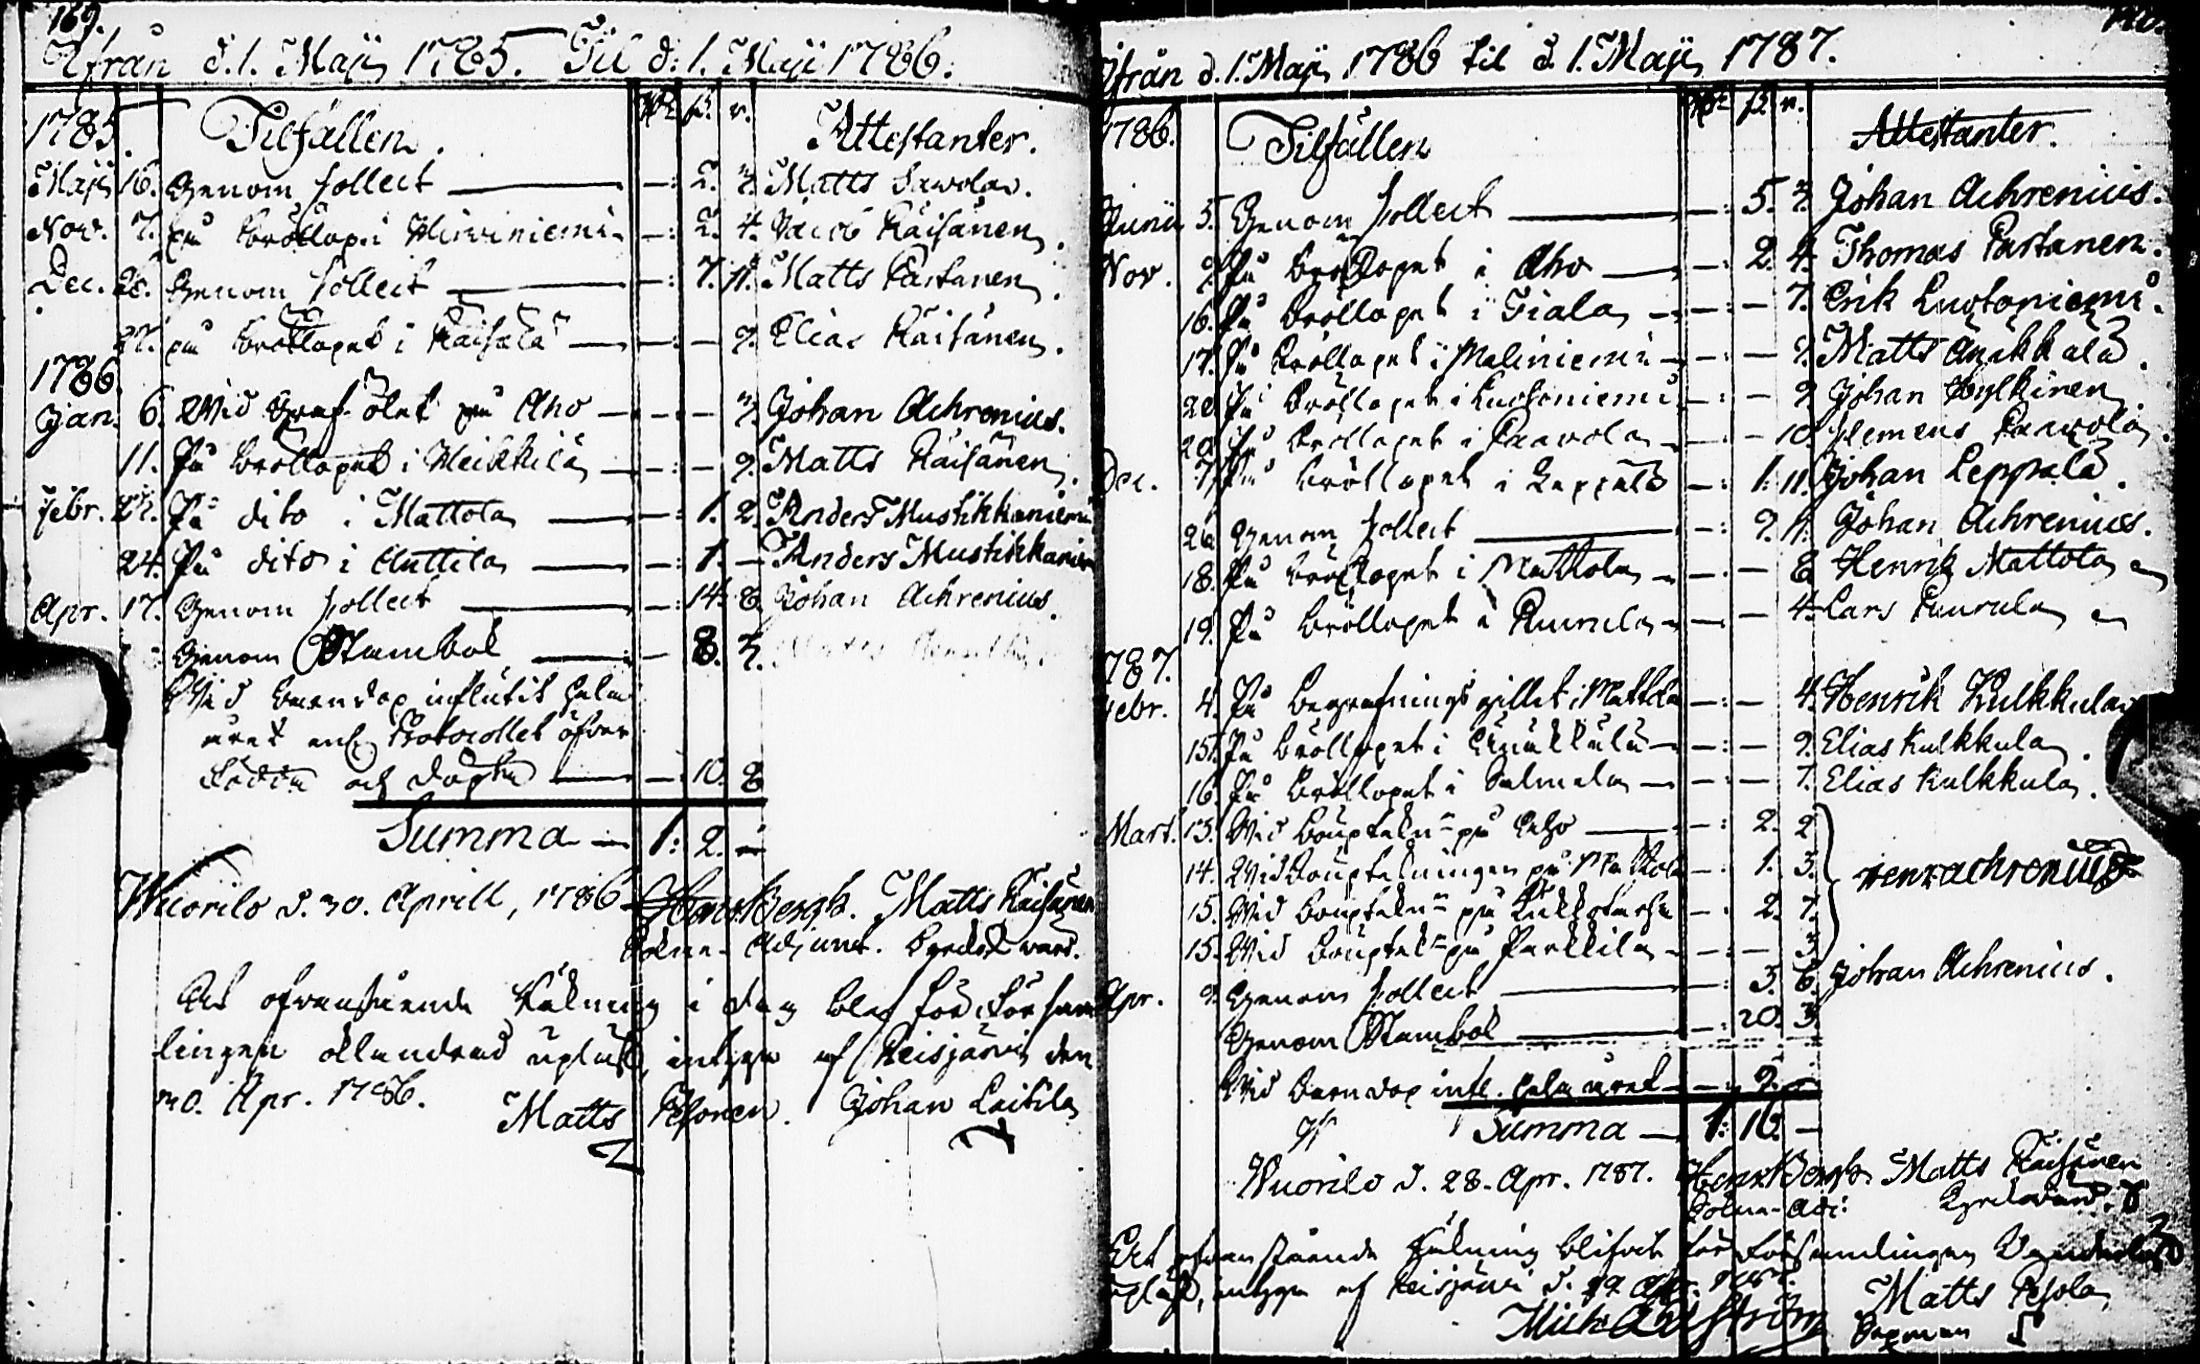 169.
Ifrån d. 1. Maji 1785. Til d: 1. Maji 1786.
1785. Tilfällen. Rdr ß. r. Attestanter.
Maji 16. Genom Collect — —: 2. 7. Matts Savola.
Nov. 7. på bröllop i Hirviniemi — —: 2. 4. Jacob Räisänen.
Dec. 26. Genom Collect — —: 7. 11. Matts Partanen.
27. på bröllopet i Räisälä — —: — 9. Elias Räisänen.
1786.
Jan. 6. Wid Graf-ölet på Aho — —: — 7. Johan Achrenius.
11. På bröllopet i Heikkilä — —: — 9. Matts Räisänen.
Febr. 22. På dito i Mattola — —: 1. 2. Anders Mustikkaniemi
24. På dito i Anttila — —: 1. — Anders Mustikkaniem
Apr. 17. Genom Collect — —: 14. 8. Johan Achrenius.
Genom Stambok — — 8. 7.
Wid barndop influtit halfva
året enl. Protocollet öfver
födda och döpta — —: 10. 8
Summa — 1: 2. —
Wuorilo d. 30. Aprill, 1786. Henr Bergh. Matts Räisänen
Sokne-Adjunct. kyrckovärd.
At ofvanstående Räkning i dag blef för Försam
lingen oklandrad upläst, intyga af Reisjärvi den
30. Apr. 1786. Matts Pesonen. Johan Leitila
Ifrån d. 1. Maji 1786 til d. 1. Maji 1787.
1786. Tilfällen Rdr ß. r. Attestanter.
Junii 5. Genom Collect — —: 5. 7. Johan Achrenius.
Nov. 9. På bröllopet i Aho — —: 2. 4. Thomas Partanen.
16. På bröllopet i Tiala — —: — 7. Erik Luotoniemi.
17. På bröllopet i Maliniemi — —: — 9. Matts Änäkkälä.
20. På bröllopet i Kuosoniemi — — 9 Johan Hylkinen
20. På bröllopet i Paavola — — 10. Clemens Paavola.
Dec. 7. På bröllopet i Leppälä — —: 1. 11. Johan Leppälä.
26 Genom Collect — —: 9. 11. Johan Achrenius.
18. På bröllopet i Mattola — —: — 8 Henrik Mattola
19. På bröllopet i Ruurula — — 4. Lars Ruurula
1787.
Febr. 4. På begrafnings gillet i Mattila — —: — 4. Henrik Kulkkula
15. På bröllopet i Änäkkälä — —: — 9. Elias Kulkkula.
16. På bröllopet i Salmela — —: — 7. Elias Kulkkula.
Mart. 13. Wid bouptekn: på Aho — —: 2. 2
14. Wid bouptekningen på Mattola —: 1. 3. Henr Achrenius
15. Wid bouptekn: på —: 2. 7.
15. Wid bouptek: på Parkkila — —: — 3
Apr. 9. Genom Collect — 3. 6. Johan Achrenius.
Genom Stambok — —: 20. 3.
Wid barndop infl. halfva året — —: 9. —
Summa — 1: 16. —
Wuorilo d. 28. Apr. 1787. Henr Bergh Matts Räisänen
Sokne-Adj: Kyrckovärd.
At ofvanstående Räkning blifvit för Församlingen
upläst, intyga af Reisjärvi d. 29 Apr. 1787.
Mich Ahlström Matts Pesola
Sexman